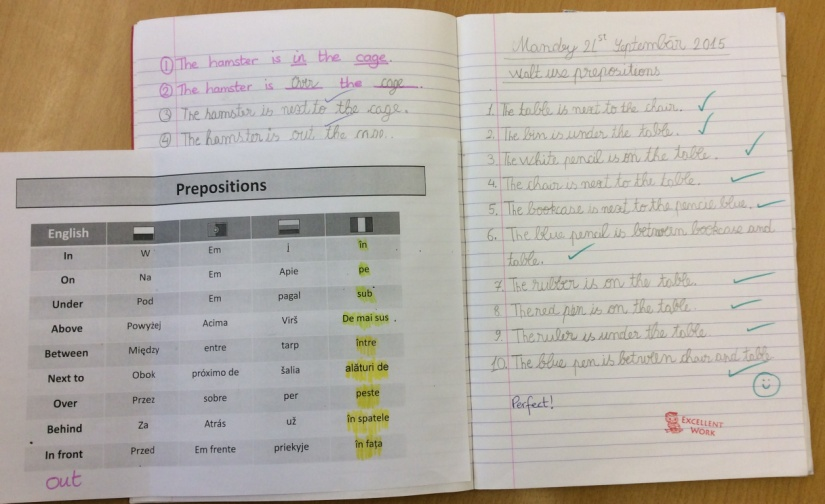 ① The hamster is in the cage.
② The hamster is Over the cage.
③ The hamster is next to the cage.
④ The hamster is out the
Prepositions
English
In W Em į în
On Na Em Apie pe
Under Pod Em pagal sub
Above Powyżej Acima Virš De mai sus
Between Między entre tarp între
Next to Obok próximo de šalia alături de
Over Przez sobre per peste
Behind Za Atrás už în spatele
In front Przed Em frente priekyje în fața
out
Manday 21st Septembär 2015
Walt use prepositions
1. The table is next to the chair.
2. The bin is under the table.
3. The white pencil is on the table.
4. The chair is next to the table.
5. The bookcase is next to the pencie blue.
6. The blue pencil is betwein bookcase and
table.
7. The rubber is on the table.
8. The red pen is on the table.
9. The ruler is under the table
10. The blue pen is betwien chair and table
Perfect!
EXCELLENT
WORK